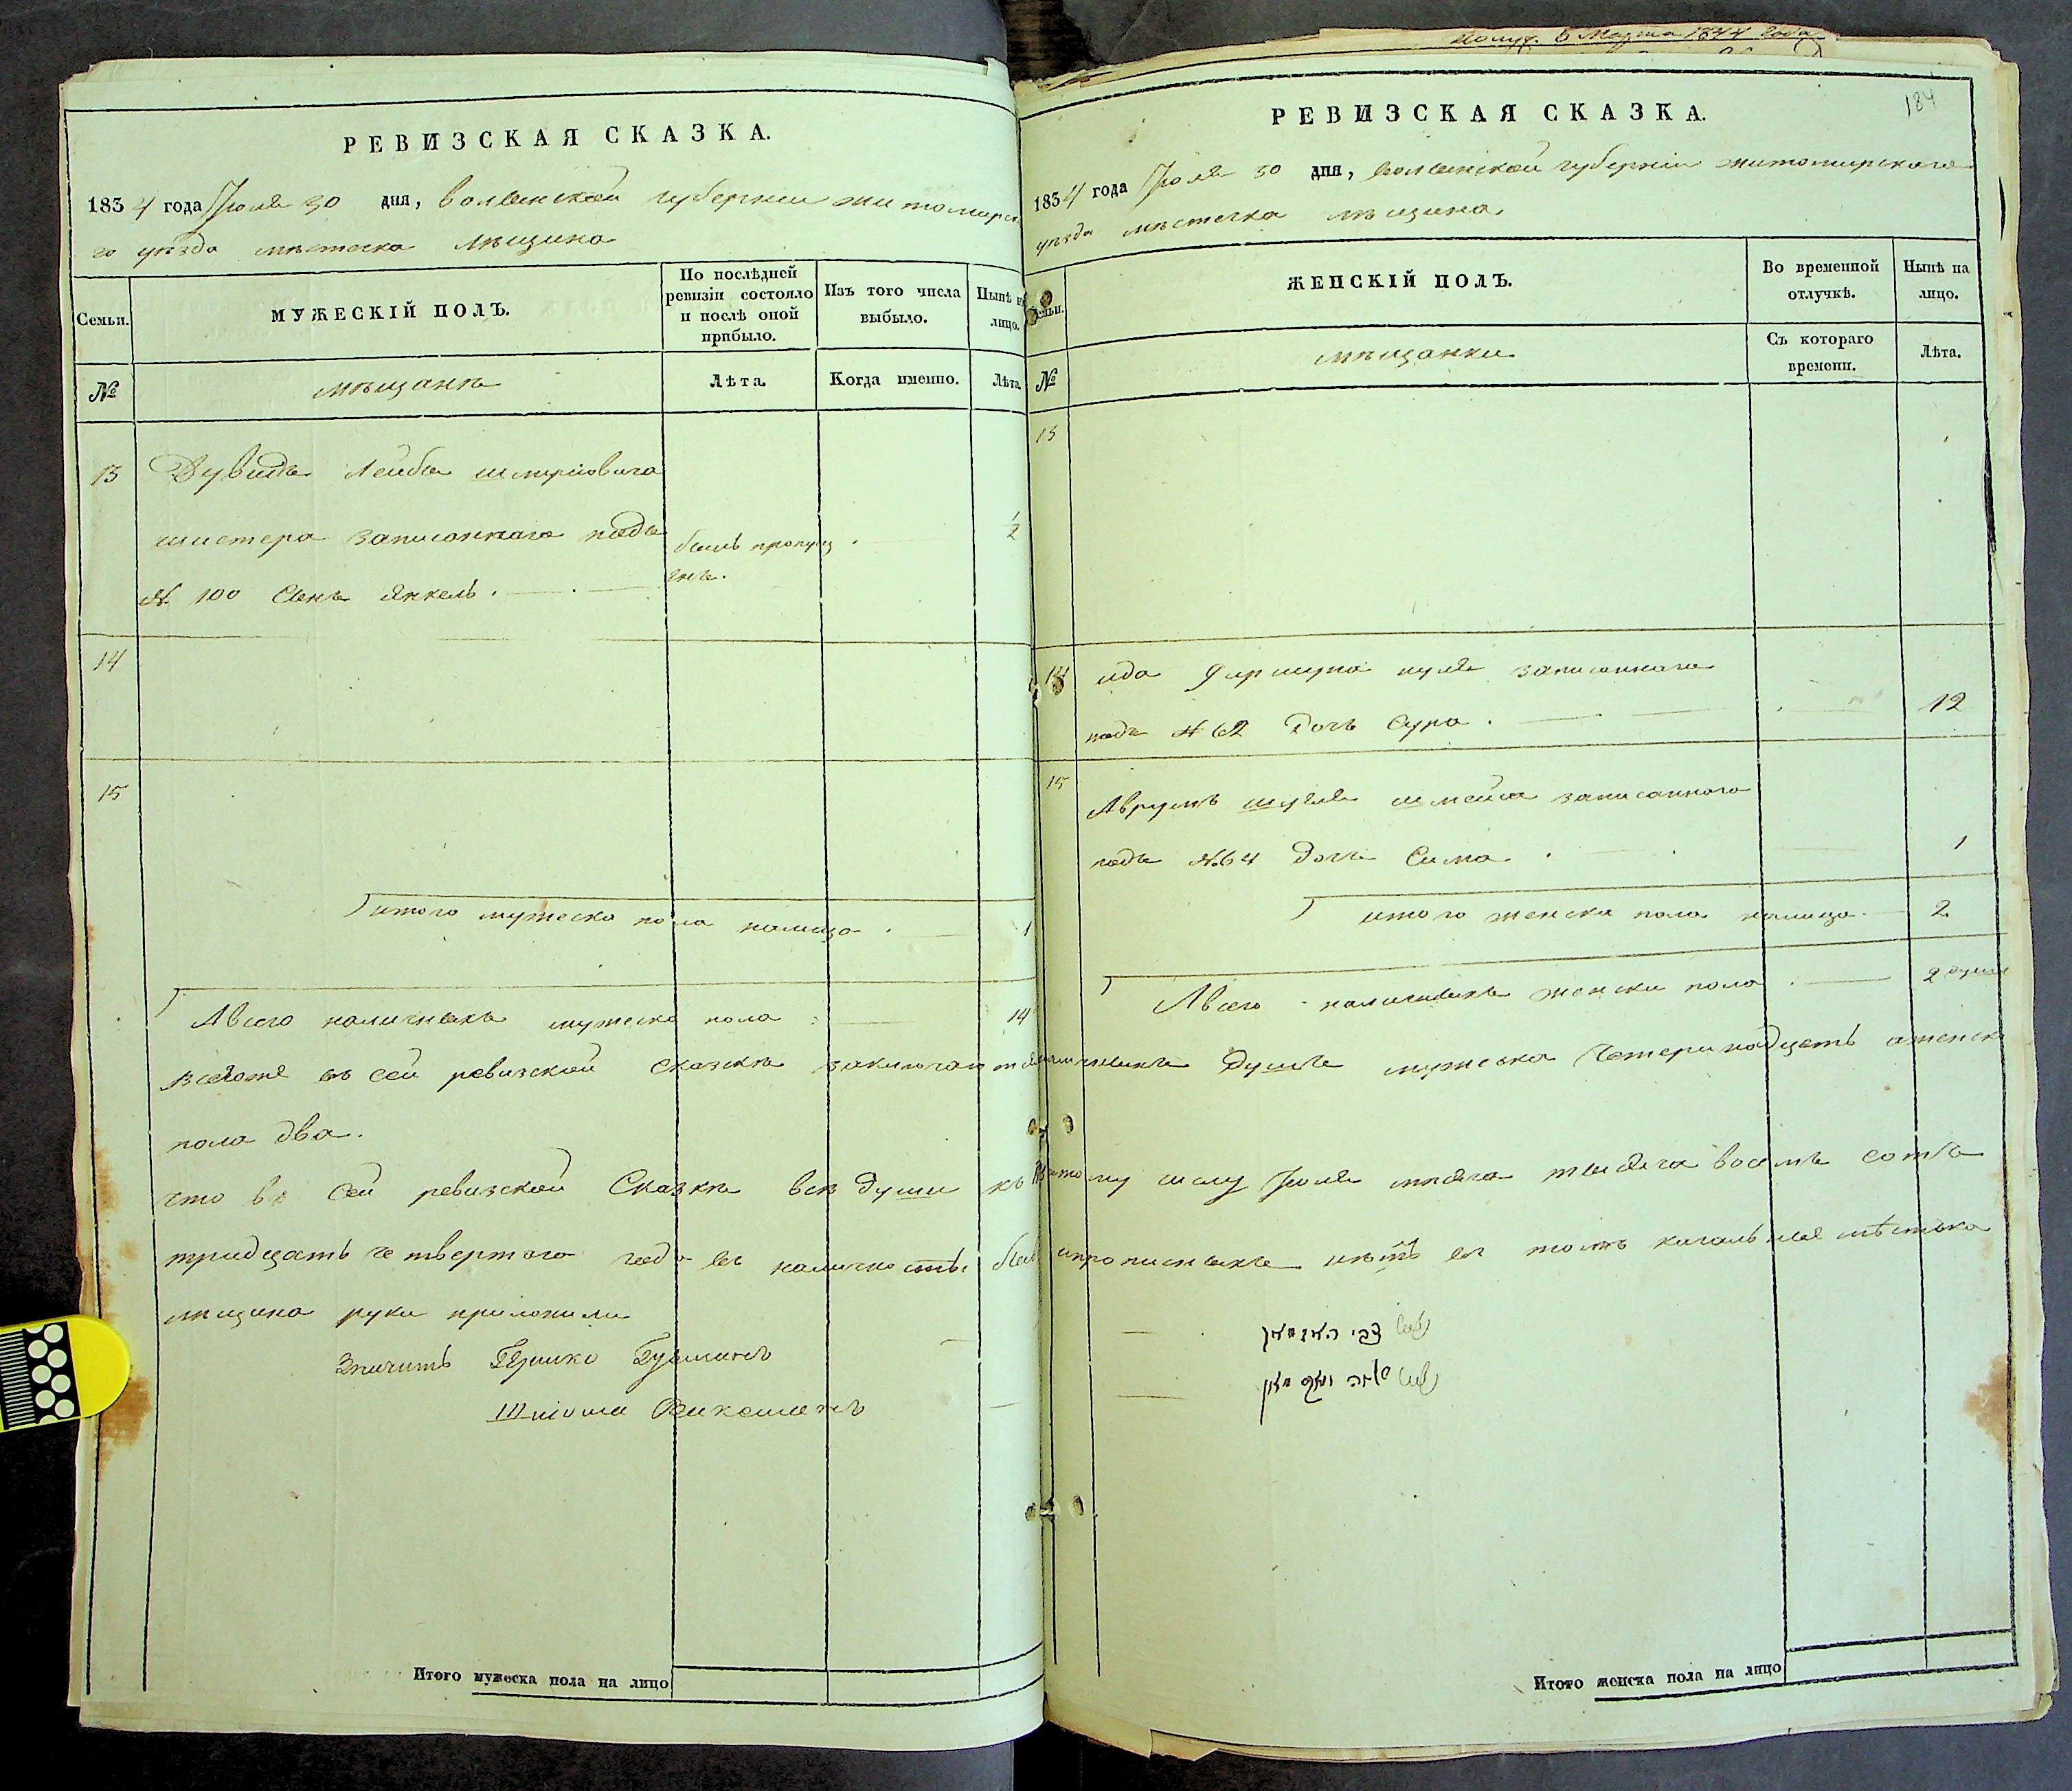 Получ. 6 Марта 1844 года
РЕВИЗСКАЯ СКАЗКА.
1834 года Іюля 30 дня, волынской губерніи житомирска
го уѣзда мѣстечка
Семьи.
МУЖЕСКІЙ ПОЛЪ.
По послѣдней ревизіи состояло и послѣ оной прибыло.
Изъ того числа выбыло.
Нынѣ на лицо.
№
мѣщанъ
Лѣта.
Когда именно.
Лѣта.
13 Дувидъ Лейба шмуліовича
шистера записаннаго подъ
былъ пропущ
енъ.
1/2
N. 100 Сынъ Янкель.
14
15
итого мужеска пола налицо 1
А всего наличныхъ мужеска пола 14
РЕВИЗСКАЯ СКАЗКА.
184
1834 года Іюля 30 дня, волынской губерніи житомирскаго
уѣзда мѣстечка
Семьи.
ЖЕНСКІЙ ПОЛЪ.
Во временной отлучкѣ.
Нынѣ на лицо.
№
мѣщанки
Съ котораго времени.
Лѣта.
13
14 записаннаго
подъ N 62 Дочь Сура. 12
15 Аврумъ шуля записанного
подъ N. 64 дочь Сима. 1
итого женска пола налицо 2
А всего наличныхъ женска пола 2 души
всегоже въ сей ревизской сказкѣ заключается наличныхъ душъ мужеска Четернадцеть аженска
пола два.
что въ сей ревизской Сказкѣ всѣ души къ 1му числу Іюля мѣсяца тысяча восемь сотъ
тридцать четвертого года въ наличности были ипрописныхъ нѣтъ въ томъ кагальные мѣстечка
руки приложили
Значитъ Гершко
צבי
Итого мужеска пола на лицо
Итого женска пола на лицо